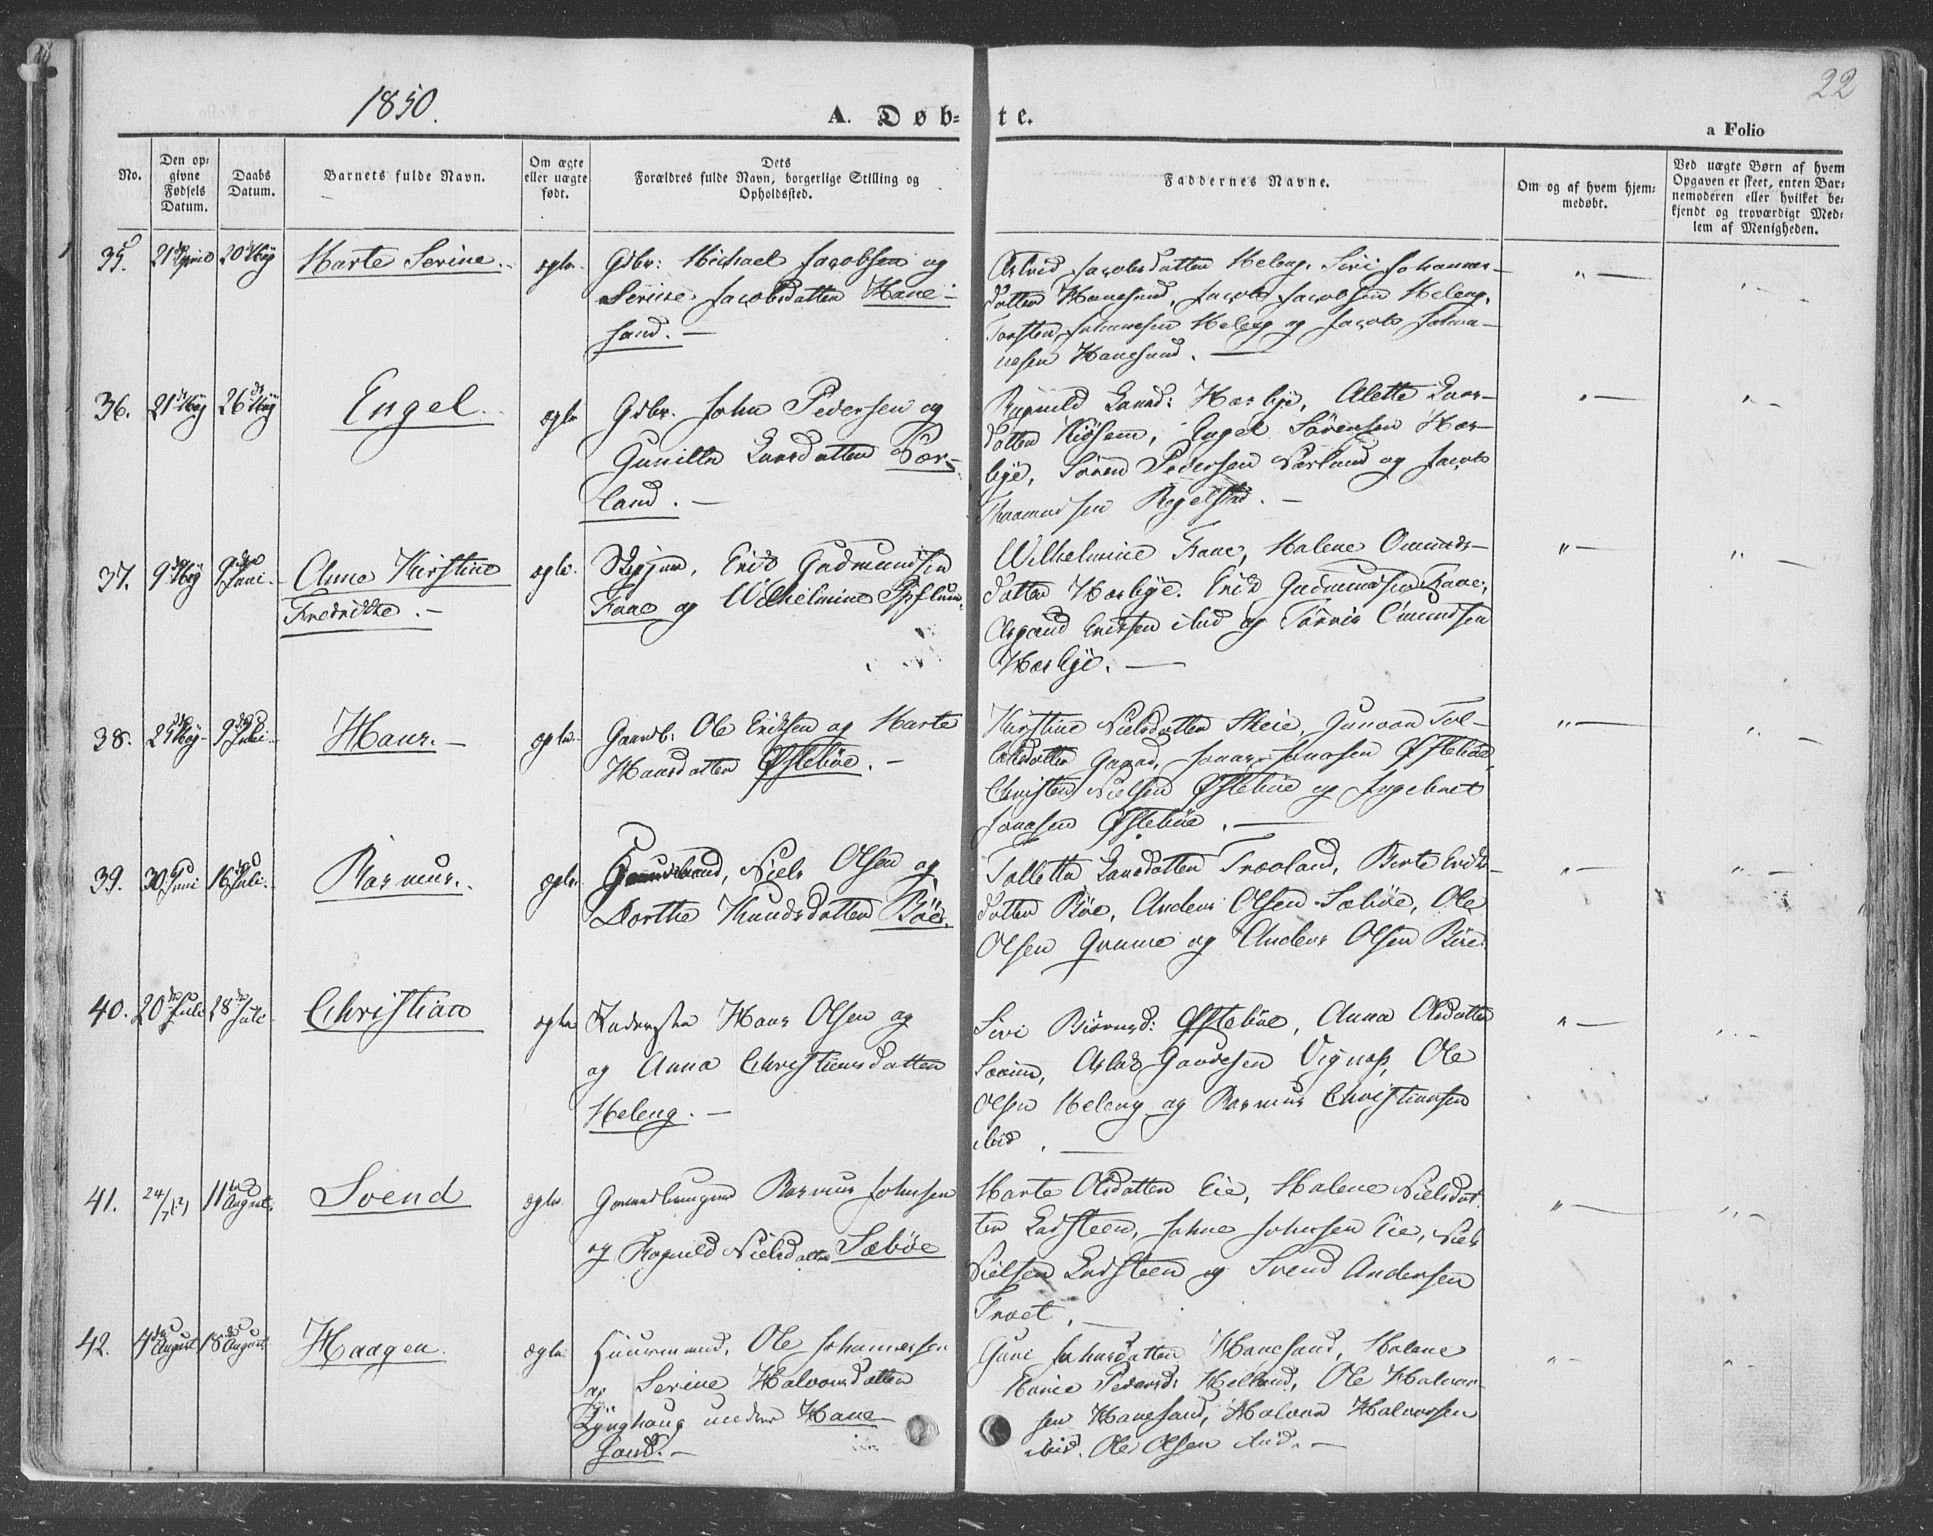 1850.
A. Døb=
te.
22
a Folio
No.
Den op=
givne
Fødsels
Datum.
Daabs
Datum.
Barnets fulde Navn.
Om ægte
eller uægte
født.
Dets
Forældres fulde Navn, borgerlige Stilling og
Opholdssted.
Faddernes Navne.
Om og af hvem hjem=
medøbt.
Ved uægte Børn af hvem
Opgaven er skeet, enten Bar=
nemoderen eller hvilket be=
kjendt og troværdigt Med=
lem af Menigheden.
35. 21 April 20 Maj Marte Serine. ægte. Gdbr: Michael Jacobsen og
Serine Jacobsdatten Hane-
sand. —
Jacobsdatten Heleng, Siri Johannes-
datten Hanesand, Jacob Jacobsen Heleng,
Torsten Johannesen Heleng og Jacob Johan-
nesen Hanesand. —
36. 21 Maj 26 Maj Engel. ægte Gdbr. John Pedersen og
Gunilla Larsdatten Vær-
land. —
Ragnild Larsd: Hæsbye, Alette Lars-
datten Kiøsem, Engel Sørensen Hæs-
bye, Søren Pedersen Værland og Jacob
Raamundsen Regelstad. —
37. 9 Maj 9 Juni. Anne Kirstine
Fredrikke. — ægte. Erik Gudmundsen
Faae og Wilhelmine
Wilhelmine Faae, Malene Omunds-
datten Hæsbye, Erik Gudmundsen Faae,
Asgaud Eriksen ibid og Tørris Omundsen
Hæsbye. —
38. 25 Maj 9 Juli. Hans. — ægte. Gaardb: Ole Eriksen og Marte
Hansdatten Østebøe. —
Kirstine Nielsdatten Skeie, Gunvor Tol-
leksdatten Gaard, Jonas Jonasen Østebøe,
Christen Nielsen Østebøe og Ingebret
Jonasen Østebøe. —
39. 30 Juni 16 Juli. Rasmus. ægte. Gaardbrund, Niels Olsen og
Dorthe Knudsdatten Bøe.
Tolletta Larsdatten Træland, Berte Eriks-
datten Bøe, Anders Olsen Sæbøe, Ole
Olsen Grame og Anders Olsen Bøe.
40. 20 Juli 28 Juli. Christian ægte Hans Olsen og
og Anna Christiansdatten
Heleng. —
Siri Biørnsd: Østebøe, Anna Olsdatten
Aslak Gautesen Vignæs, Ole
Olsen Heleng og Rasmus Christiansen
ibid. —
41. 24/7 11 August. Svend ægte Rasmus Johnsen
og Ragnild Nielsdatten Sæbøe
Marte Olsdatten Eie, Malene Nielsdat-
ten Ladsteen, Johne Johnsen Eie, Niels
Nielsen Ladsteen og Svend Andersen
Troet. —
42. 4 August 18 August Haagen. ægte. Huusmand, Ole Johannessen
og Serine Halvorsdatten
Lynghaug under Hane-
sand. —
Guni Johnsdatten Hanesand, Malene
Marie Pedersd: Helland, Ole Halvor-
sen Hanesand, Halvor Halvorsen
ibid. Ole Olsen ibid. —